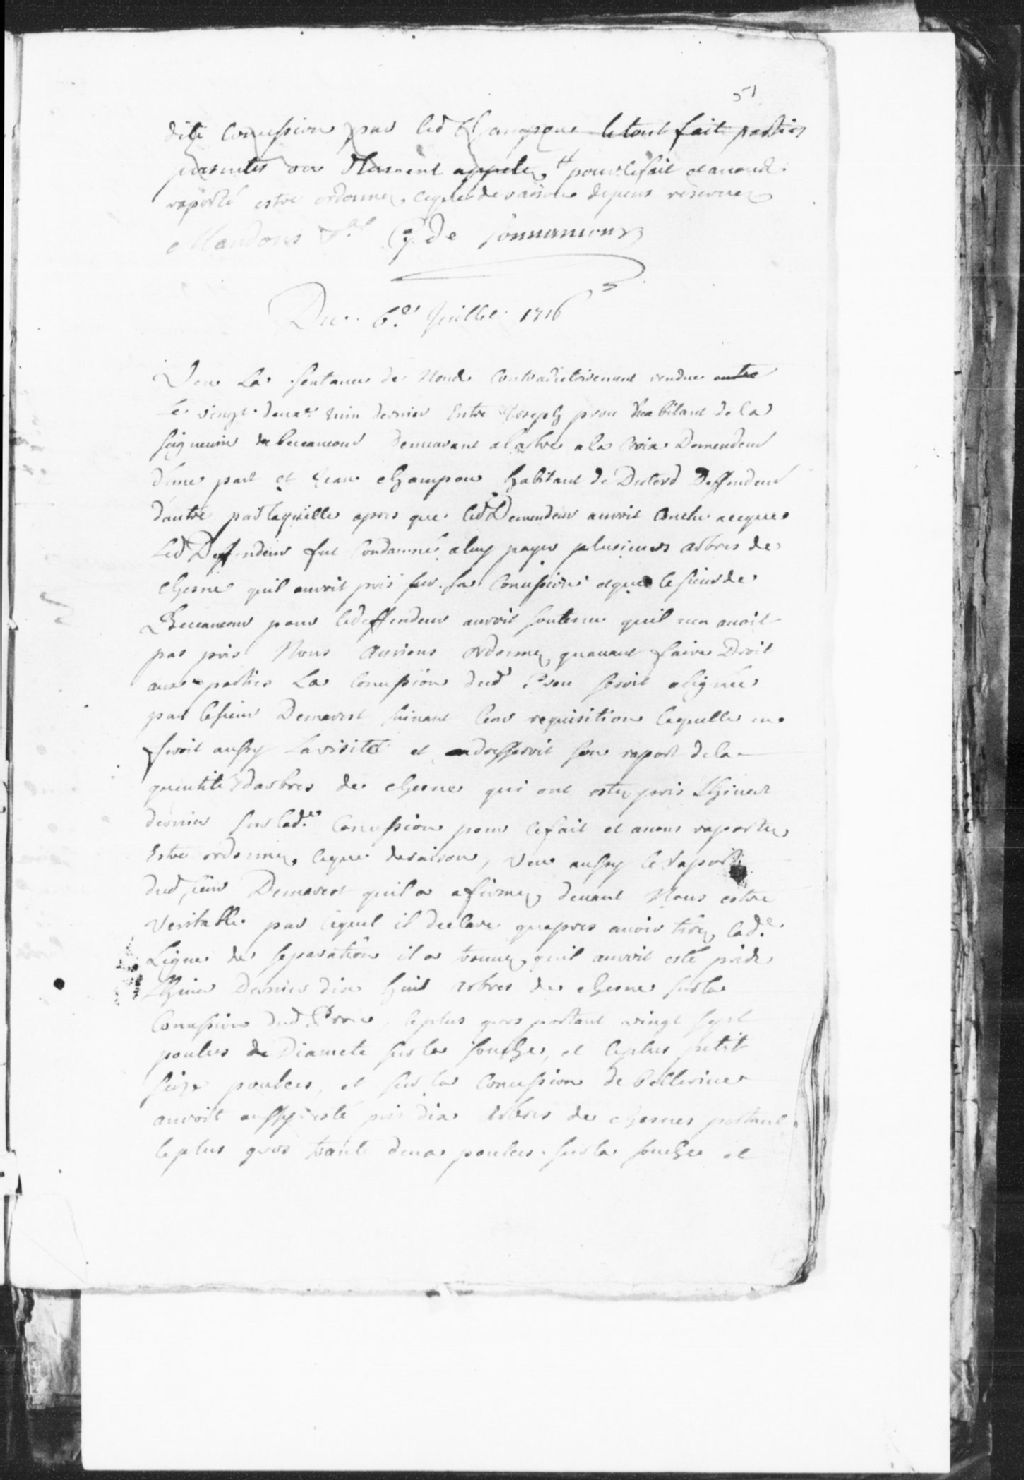 51
dite Concession par led Champou le tout fait parties
presentes ou dLument appelez pour le fait et a nous
raporté estre ordonné ce que de raison depens reservez
Mandons &c G. De Tonnancour
Du 6e Juillet 1716
Veu La sentence de Nous Contradictoirement rendue entre
Le vingt deux Juin dernier Entre Joseph prou habitant de la
seigneurie de becancour demeurant a la Demendeur
d'une part et Jean Champou habitant de Dutord Deffendeur
d'autre par laquelle apres que led Demendeur auroit Conclu aceque
Led Deffendeur fut Condamné a luy payer plusieurs arbres de
chesne quil auroit pris sur sa Concession et que le sieur de
Becancour pour le deffendeur auroit soutenu quil nen auoit
pas pris Nous aurions ordonné quauant faire Droit
aux parties La Concession dud Prou seroit alignée
par le sieur Demerest suivant leur requisition laquelle en
feroit aussy la visitte et adresseroit son raport de la
quantité darbres de chesnes qui ont esté pris Lhiver
dernier sur lade Concession pour ce fait et a nous raporté
Estre ordonné ce que de raison, Veu aussy le raport
dud sieur Demerest quil a afirmé devant Nous estre
Veritable par lequel il declare quapres auoir tiré lade
Ligne de separation il a trouué quil auroit esté pris de
Lhiver Dernier dix huit arbres de chesne sur la
Concession dud Prou, le plus gros portant vingt sept
poulces de Diamete sur la souche, et le plus petit
seize poulces, et sur la Concession de Pellerine
auroit aussy esté pris dix arbres de chesnes portant
le plus gros trante deux poulces sur la souche et